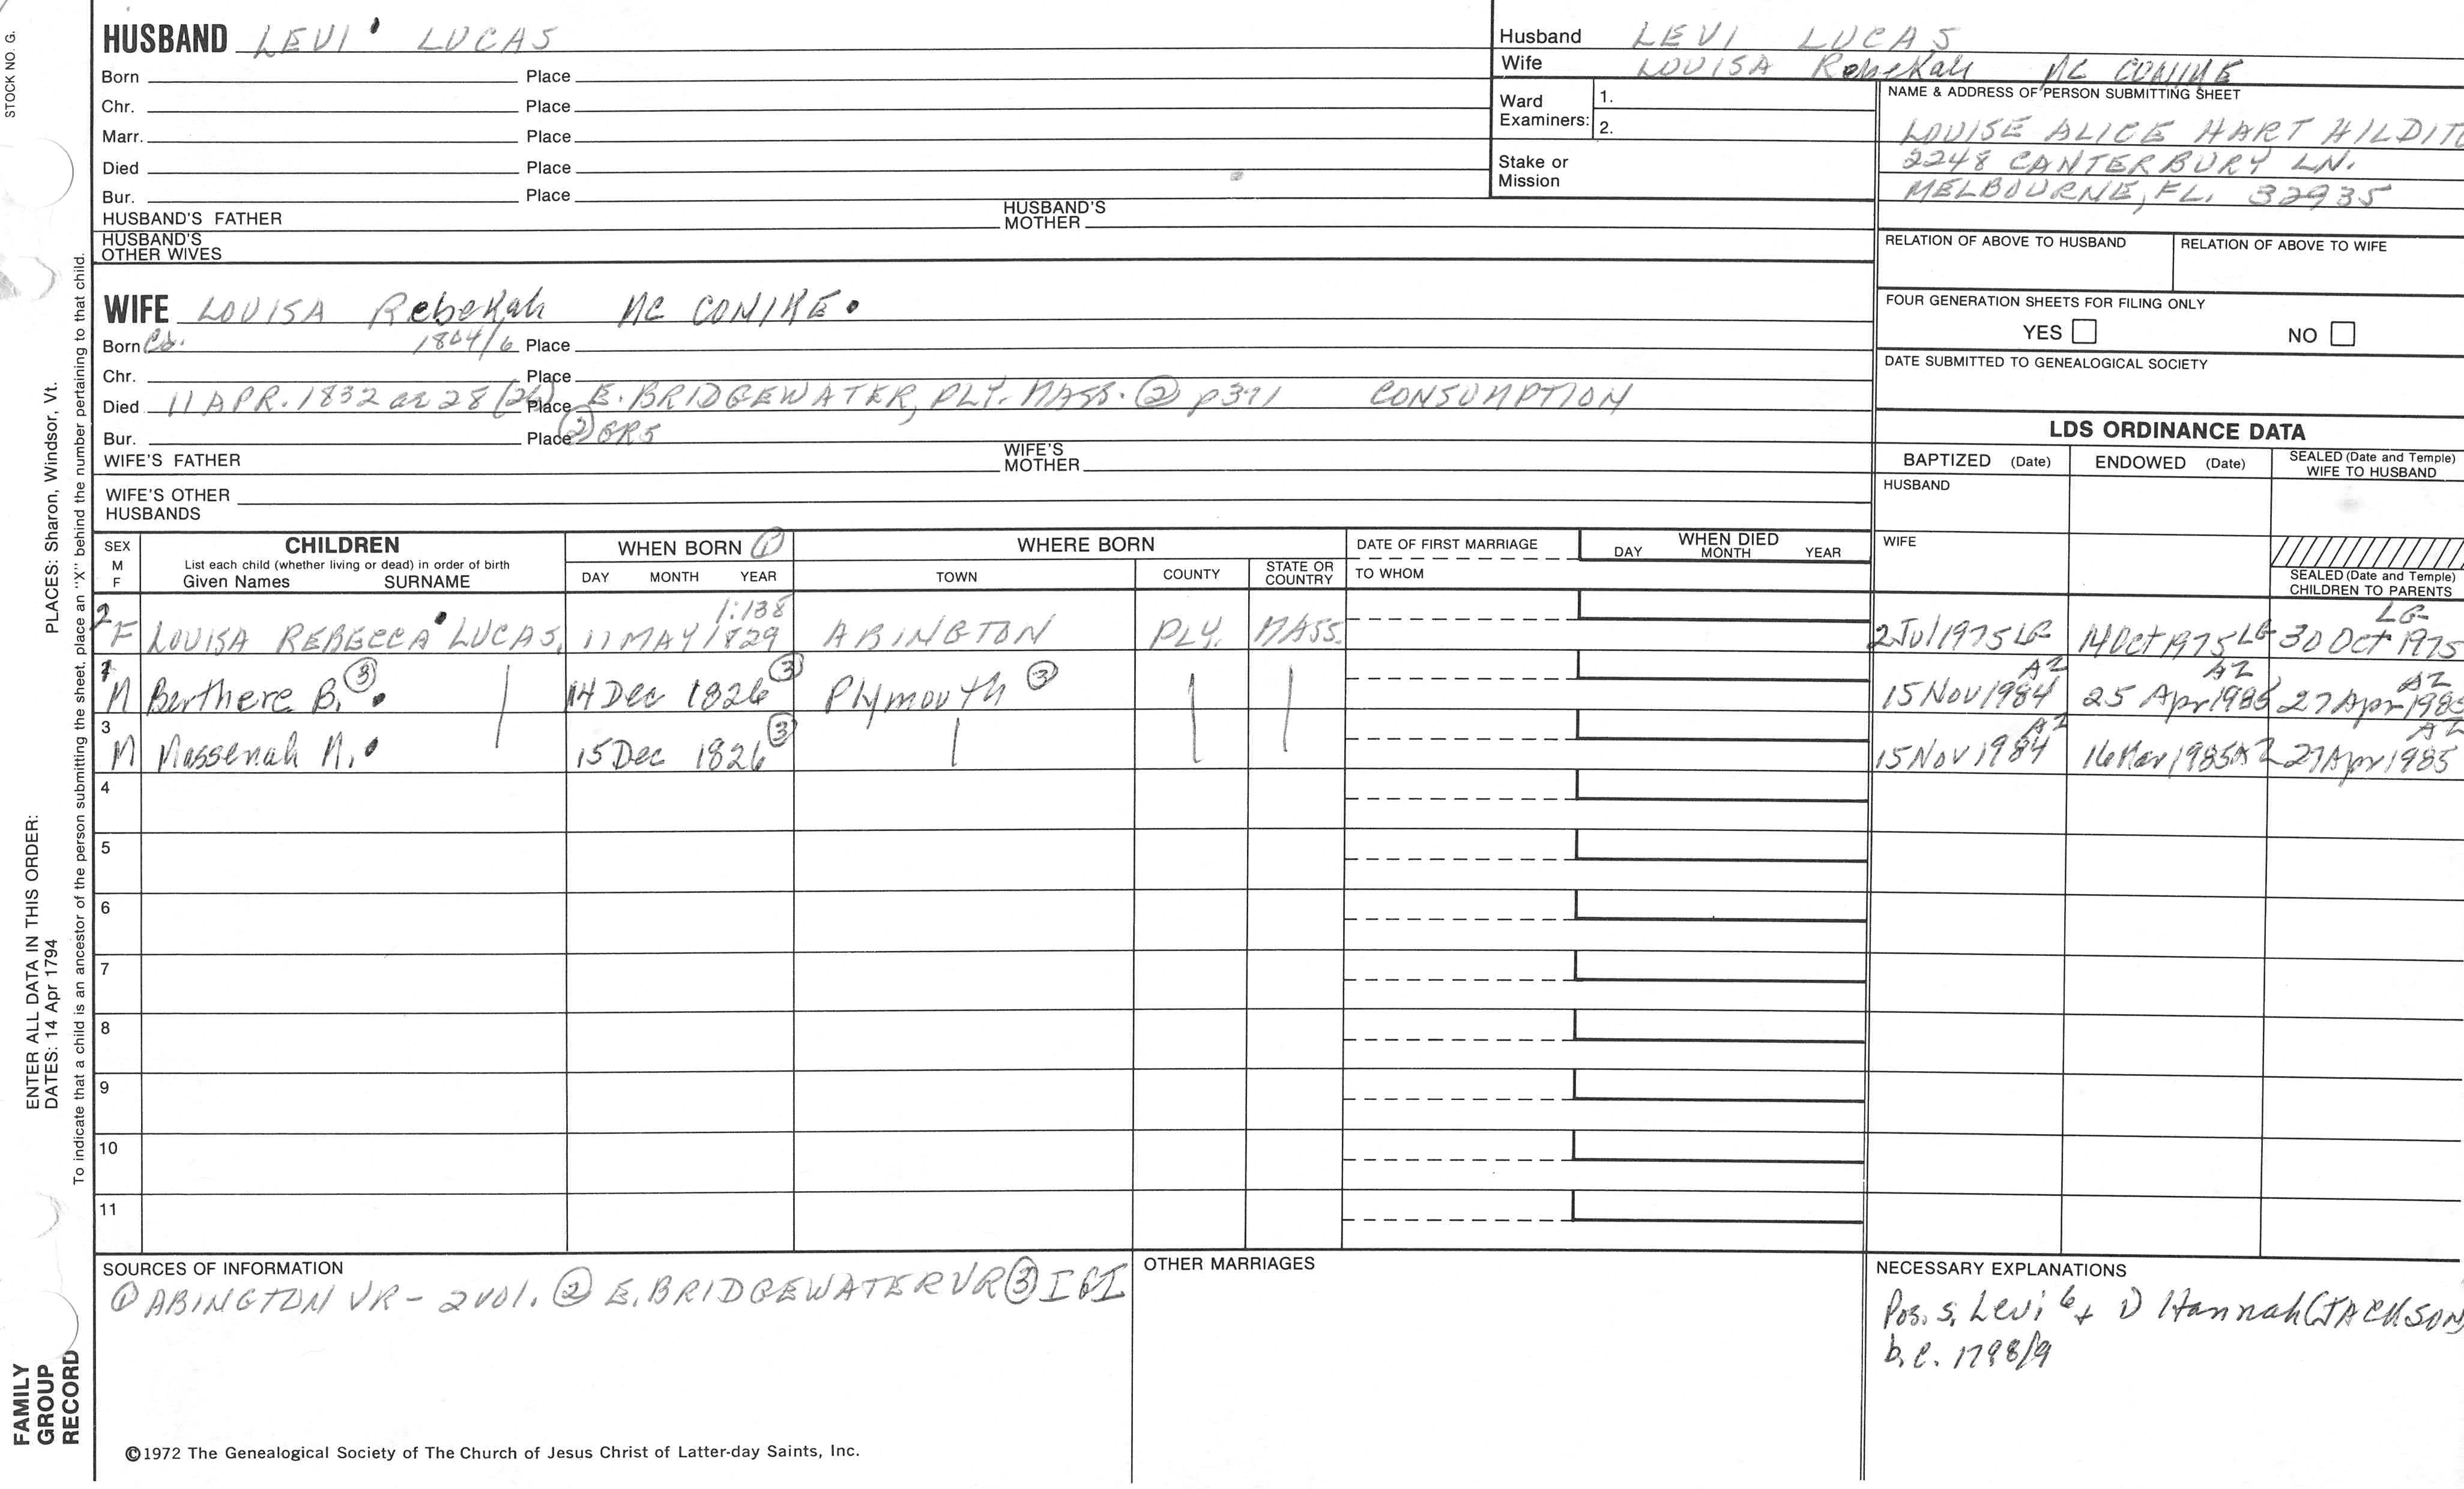 STOCK NO. G.
PLACES: Sharon, Windsor, Vt.
ENTER ALL DATA IN THIS ORDER:
DATES: 14 Apr 1794
To indicate that a child is an ancestor of the person submitting the sheet, place an "X" behind the number pertaining to that child.
FAMILY
GROUP
RECORD
HUSBAND LEVI LUCAS
Born Place
Chr. Place
Marr. Place
Died Place
Bur. Place
HUSBAND'S FATHER HUSBAND'S MOTHER
HUSBAND'S
OTHER WIVES
Husband LEVI LUCAS
Wife LOUISA Rebekah MC CONIHE
Ward
Examiners: 1.
2.
Stake or
Mission
NAME & ADDRESS OF PERSON SUBMITTING SHEET
LOUISE ALICE HART HILDIT
2248 CANTERBURY LN.
MELBOURNE, FL. 32935
RELATION OF ABOVE TO HUSBAND RELATION OF ABOVE TO WIFE
FOUR GENERATION SHEETS FOR FILING ONLY
YES NO
DATE SUBMITTED TO GENEALOGICAL SOCIETY
WIFE LOUISA Rebekah MC CONIHE.
Born Ca. 1804/6 Place
Chr. Place
Died 11 APR. 1832 or 28 (26) Place E. BRIDGEWATER, PLY. MASS. ② p371 CONSUMPTION
Bur. Place ② GR5
WIFE'S FATHER WIFE'S MOTHER
WIFE'S OTHER
HUSBANDS
LDS ORDINANCE DATA
BAPTIZED (Date) ENDOWED (Date) SEALED (Date and Temple) WIFE TO HUSBAND
HUSBAND
WIFE
SEALED (Date and Temple)
CHILDREN TO PARENTS
SEX M F CHILDREN WHEN BORN ① WHERE BORN DATE OF FIRST MARRIAGE WHEN DIED
List each child (whether living or dead) in order of birth
Given Names SURNAME DAY MONTH YEAR TOWN COUNTY STATE OR COUNTRY TO WHOM DAY MONTH YEAR
1:138 LG
2 F LOUISA REBECCA LUCAS, 11 MAY 1829 ABINGTON PLY. MASS. 2 Jul 1975 LG 14 Oct 1975 LG 30 Oct 1975
1 M Berthere B. ③ 14 Dec 1826 ③ Plymouth ③ 15 Nov 1984 AZ 25 Apr 1985 AZ 27 Apr 1985 AZ
3 M Massenah M. 15 Dec 1826 ③ 15 Nov 1984 AZ 16 Mar 1985 AZ 27 Apr 1985 AZ
4
5
6
7
8
9
10
11
SOURCES OF INFORMATION
① ABINGTON VR - 2 vol. ② E. BRIDGEWATER VR ③ IGI
OTHER MARRIAGES
NECESSARY EXPLANATIONS
Pos. s. Levi 6 + 1) Hannah (JACKSON)
b.c. 1798/9
©1972 The Genealogical Society of The Church of Jesus Christ of Latter-day Saints, Inc.